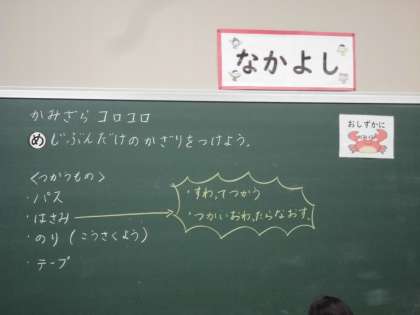 なかよし
かみざら コロコロ
め じぶんだけのかざりをつけよう。
おしずかに
<つかうもの>
・パス
・はさみ
・すわってつかう
・つかいおわったらなおす。
・のり(こうさくよう)
・テープ